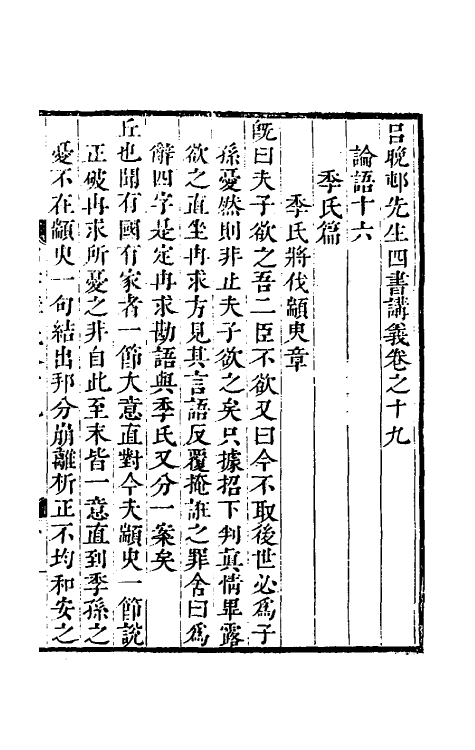 呂晚邨先生四書講義卷之十九
論語十六
季氏篇
季氏將伐顓臾章
旣曰夫子欲之吾二臣不欲又曰今不取後世必爲子
孫憂然則非止夫子欲之矣只據招下判眞情畢露
欲之直坐冉求方見其言語反覆掩誑之罪舍曰爲
辭四字是定冉求勘語與季氏又分一案矣
丘也聞有國有家者一節大意直對今夫顓臾一節說
正破冉求所憂之非自此至末皆一意直到季孫之
憂不在顓臾一句結出邦分崩離析正不均和安之